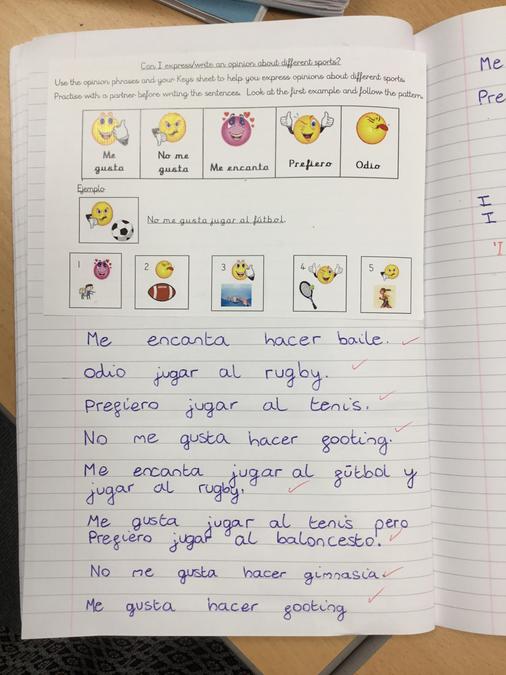 Can I express/write an opinion about different sports?
Use the opinion phrases and your Keys sheet to help you express opinions about different sports.
Practise with a partner before writing the sentences. Look at the first example and follow the pattern.
Me gusta
No me gusta
Me encanta
Prefiero
Odio
Ejemplo
No me gusta jugar al fútbol.
1
2
3
4
5
Me encanta hacer baile.
Odio jugar al rugby.
Prefiero jugar al tenis.
No me gusta hacer footing.
Me encanta jugar al fútbol y
jugar al rugby.
Me gusta jugar al tenis pero
Prefiero jugar al baloncesto.
No me gusta hacer gimnasia
Me gusta hacer footing
Me
Pre
I
I
'I